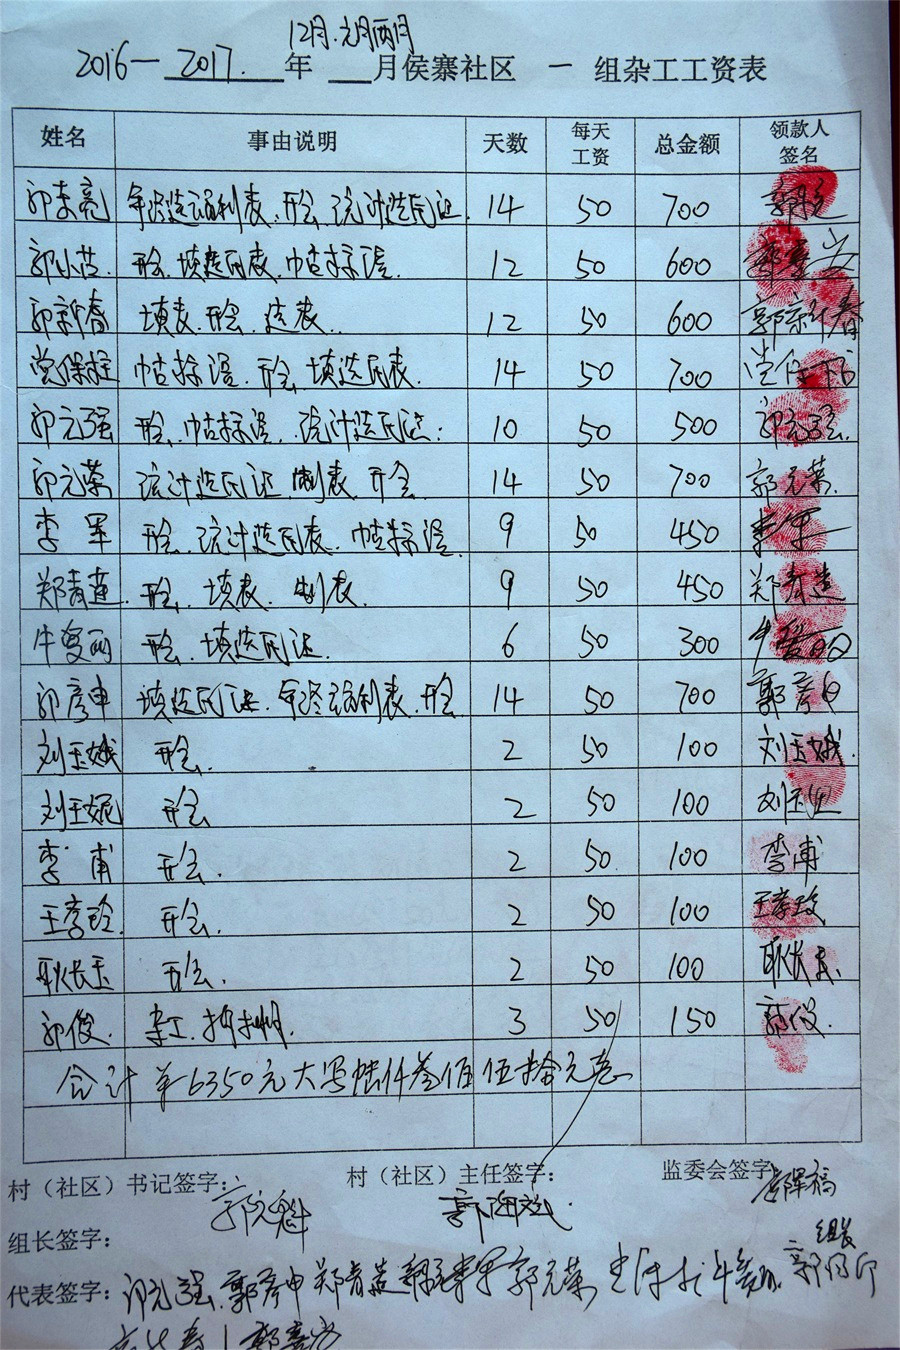 12月.元月两月
2016—2017.年 月侯寨社区 一 组杂工工资表
姓名 事由说明 天数 每天工资 总金额 领款人签名
郭孝亮 年终造福利表、开会、统计选民证 14 50 700
郭小芸. 开会、填选民表、帖标语. 12 50 600
郭新春 填表.开会.造表.. 12 50 600 郭新春
党保拴 帖标语、开会、填选民表. 14 50 700
郭元强 开会、帖标语、统计选民证. 10 50 500 郭元强.
郭元荣 统计选民证.制表.开会. 14 50 700 郭元荣.
李军 开会.统计选民表.帖标语. 9 50 450 李军
郑青莲. 开会.填表.制表. 9 50 450 郑青莲
牛爱丽 开会.填选民证. 6 50 300 牛爱
郭彦申 填选民证.年终福利表.开会 14 50 700 郭彦申
刘玉娥 开会. 2 50 100 刘玉娥.
刘玉妮 开会 2 50 100 刘玉
李甫 开会. 2 50 100 李甫
王彦玲. 开会. 2 50 100 王彦玲
耿长玉 开会. 2 50 100 耿长玉.
郭俊. 杂工. 3 50 150 郭俊.
合计 ¥6350元大写陆仟叁佰伍拾元整
村（社区）书记签字： 村（社区）主任签字： 监委会签字
组长签字： 组长
代表签字： 郭元强 郭彦申 郑青莲 李军 郭元荣